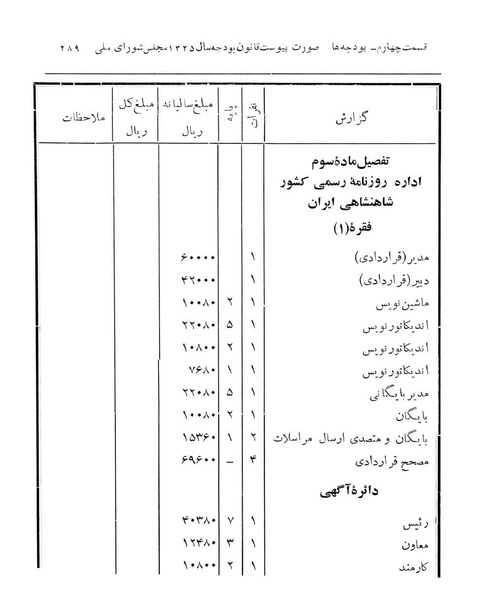 قسمت چهارم ـ بودجه‌ها صورت پیوست قانون بودجه سال ۱۳۲۵ مجلس شورای ملی ۲۸۹
گزارش نفرات پایه مبلغ سالیانه ریال مبلغ کل ریال ملاحظات
تفصیل مادهٔ سوم
اداره روزنامهٔ رسمی کشور
شاهنشاهی ایران
فقرهٔ (۱)
مدیر (قراردادی) ۱ ۶۰۰۰۰
دبیر (قراردادی) ۱ ۴۲۰۰۰
ماشین نویس ۱ ۲ ۱۰۰۸۰
اندیکاتور نویس ۱ ۵ ۲۲۰۸۰
اندیکاتور نویس ۱ ۲ ۱۰۸۰۰
اندیکاتور نویس ۱ ۱ ۷۶۸۰
مدیر بایگانی ۱ ۵ ۲۲۰۸۰
بایگان ۱ ۲ ۱۰۰۸۰
بایگان و متصدی ارسال مراسلات ۲ ۱ ۱۵۳۶۰
مصحح قراردادی ۴ ـ ۶۹۶۰۰
دائرهٔ آگهی
رئیس ۱ ۷ ۴۰۳۸۰
معاون ۱ ۳ ۱۲۴۸۰
کارمند ۱ ۲ ۱۰۸۰۰